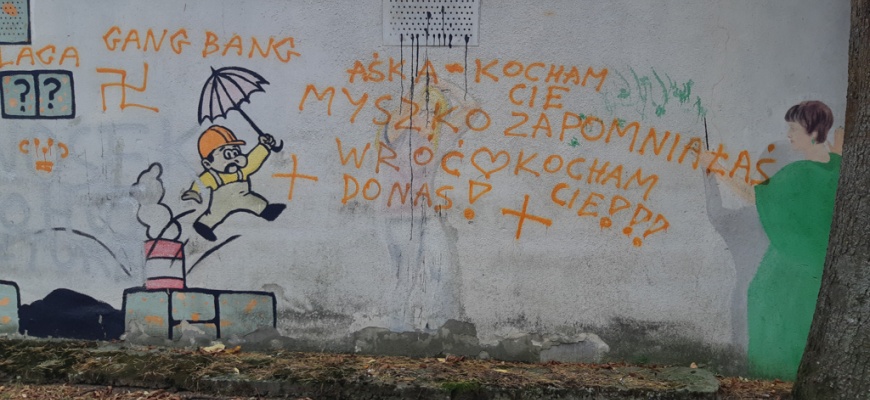 LAGA
GANG BANG
? ?
AŚKA - KOCHAM
CIE
MYSZKO ZAPOMNIAŁAŚ
WRÓĆ ♡ KOCHAM
DO NAS! CIE!!!